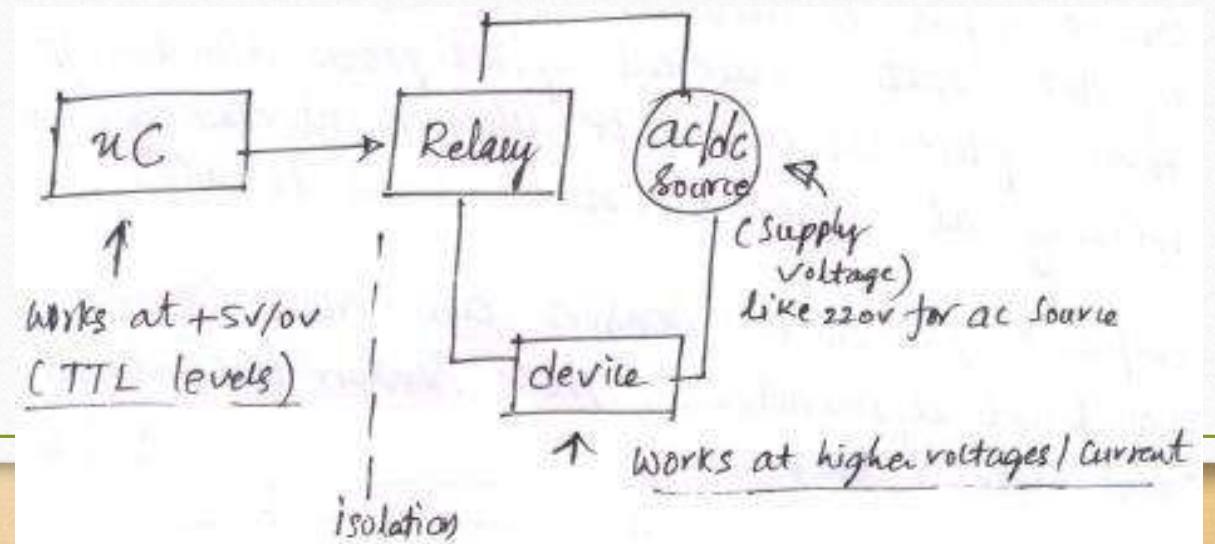 uC
Relay
ac/dc
Source
(supply
voltage)
like 220v for ac source
works at +5v/0v
(TTL levels)
device
works at higher voltages/current
isolation